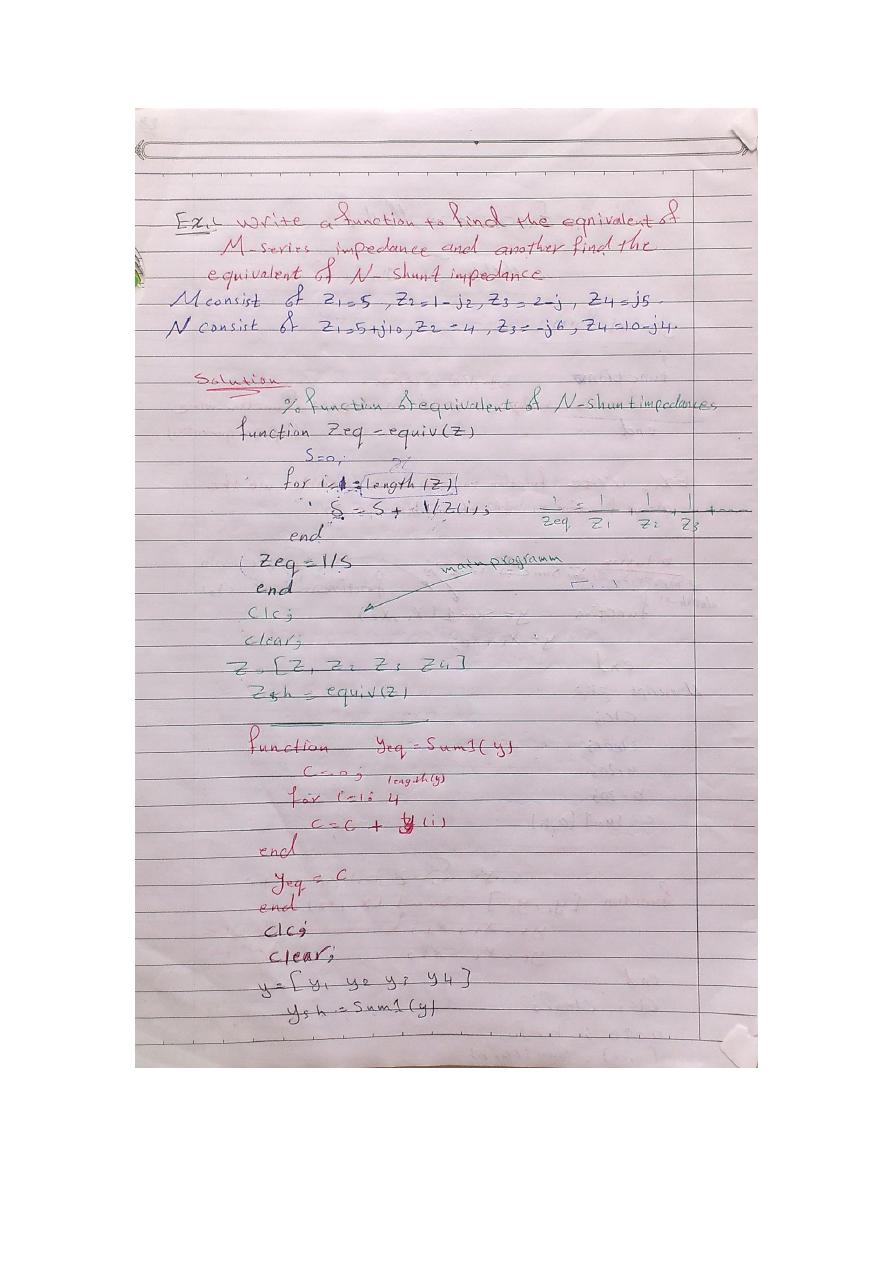 Ex:1 Write a function to find the eqnivalent of
M-series impedance and another find the
equivalent of N- shunt impedance
M consist of Z1=5 , Z2=1-j2, Z3=2-j , Z4=j5.
N consist of Z1=5+j10, Z2=4 , Z3=-j6, Z4=10-j4.
Solution
% function of equivalent of N-shunt impedances
function Zeq = equiv(Z)
S=0;
for i=1:length(Z)
S = S + 1/Z(i);
1/Zeq = 1/Z1 + 1/Z2 + 1/Z3 + ....
end
Zeq = 1/S
main programm
end
clc;
clear;
Z=[Z1 Z2 Z3 Z4]
Zsh = equiv(Z)
function yeq = Sum1(y)
C=0;
length(y)
for i=1: 4
C = C + y(i)
end
yeq = C
end
clc;
clear;
y=[y1 y2 y3 y4]
ysh = Sum1(y)